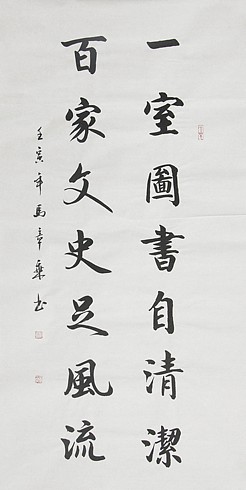 一室圖書自清潔
百家文史足風流
壬寅年馬章乘书